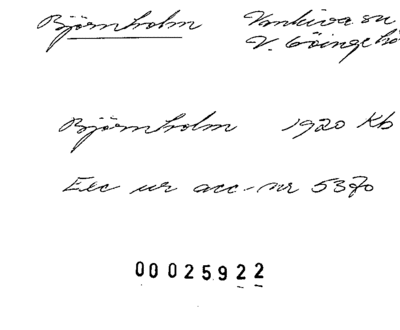 Björnholm Vankiva sn
V. Göinge hä
Björnholm 1920 Kb
Exc ur acc-nr 5370
00025922